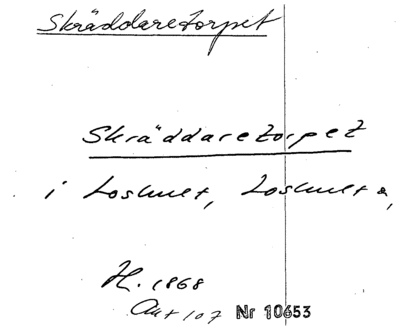 Skräddaretorpet
Skräddaretorpet
i Loshult, Loshult a,
H. 1868
Akt 107 Nr 10653